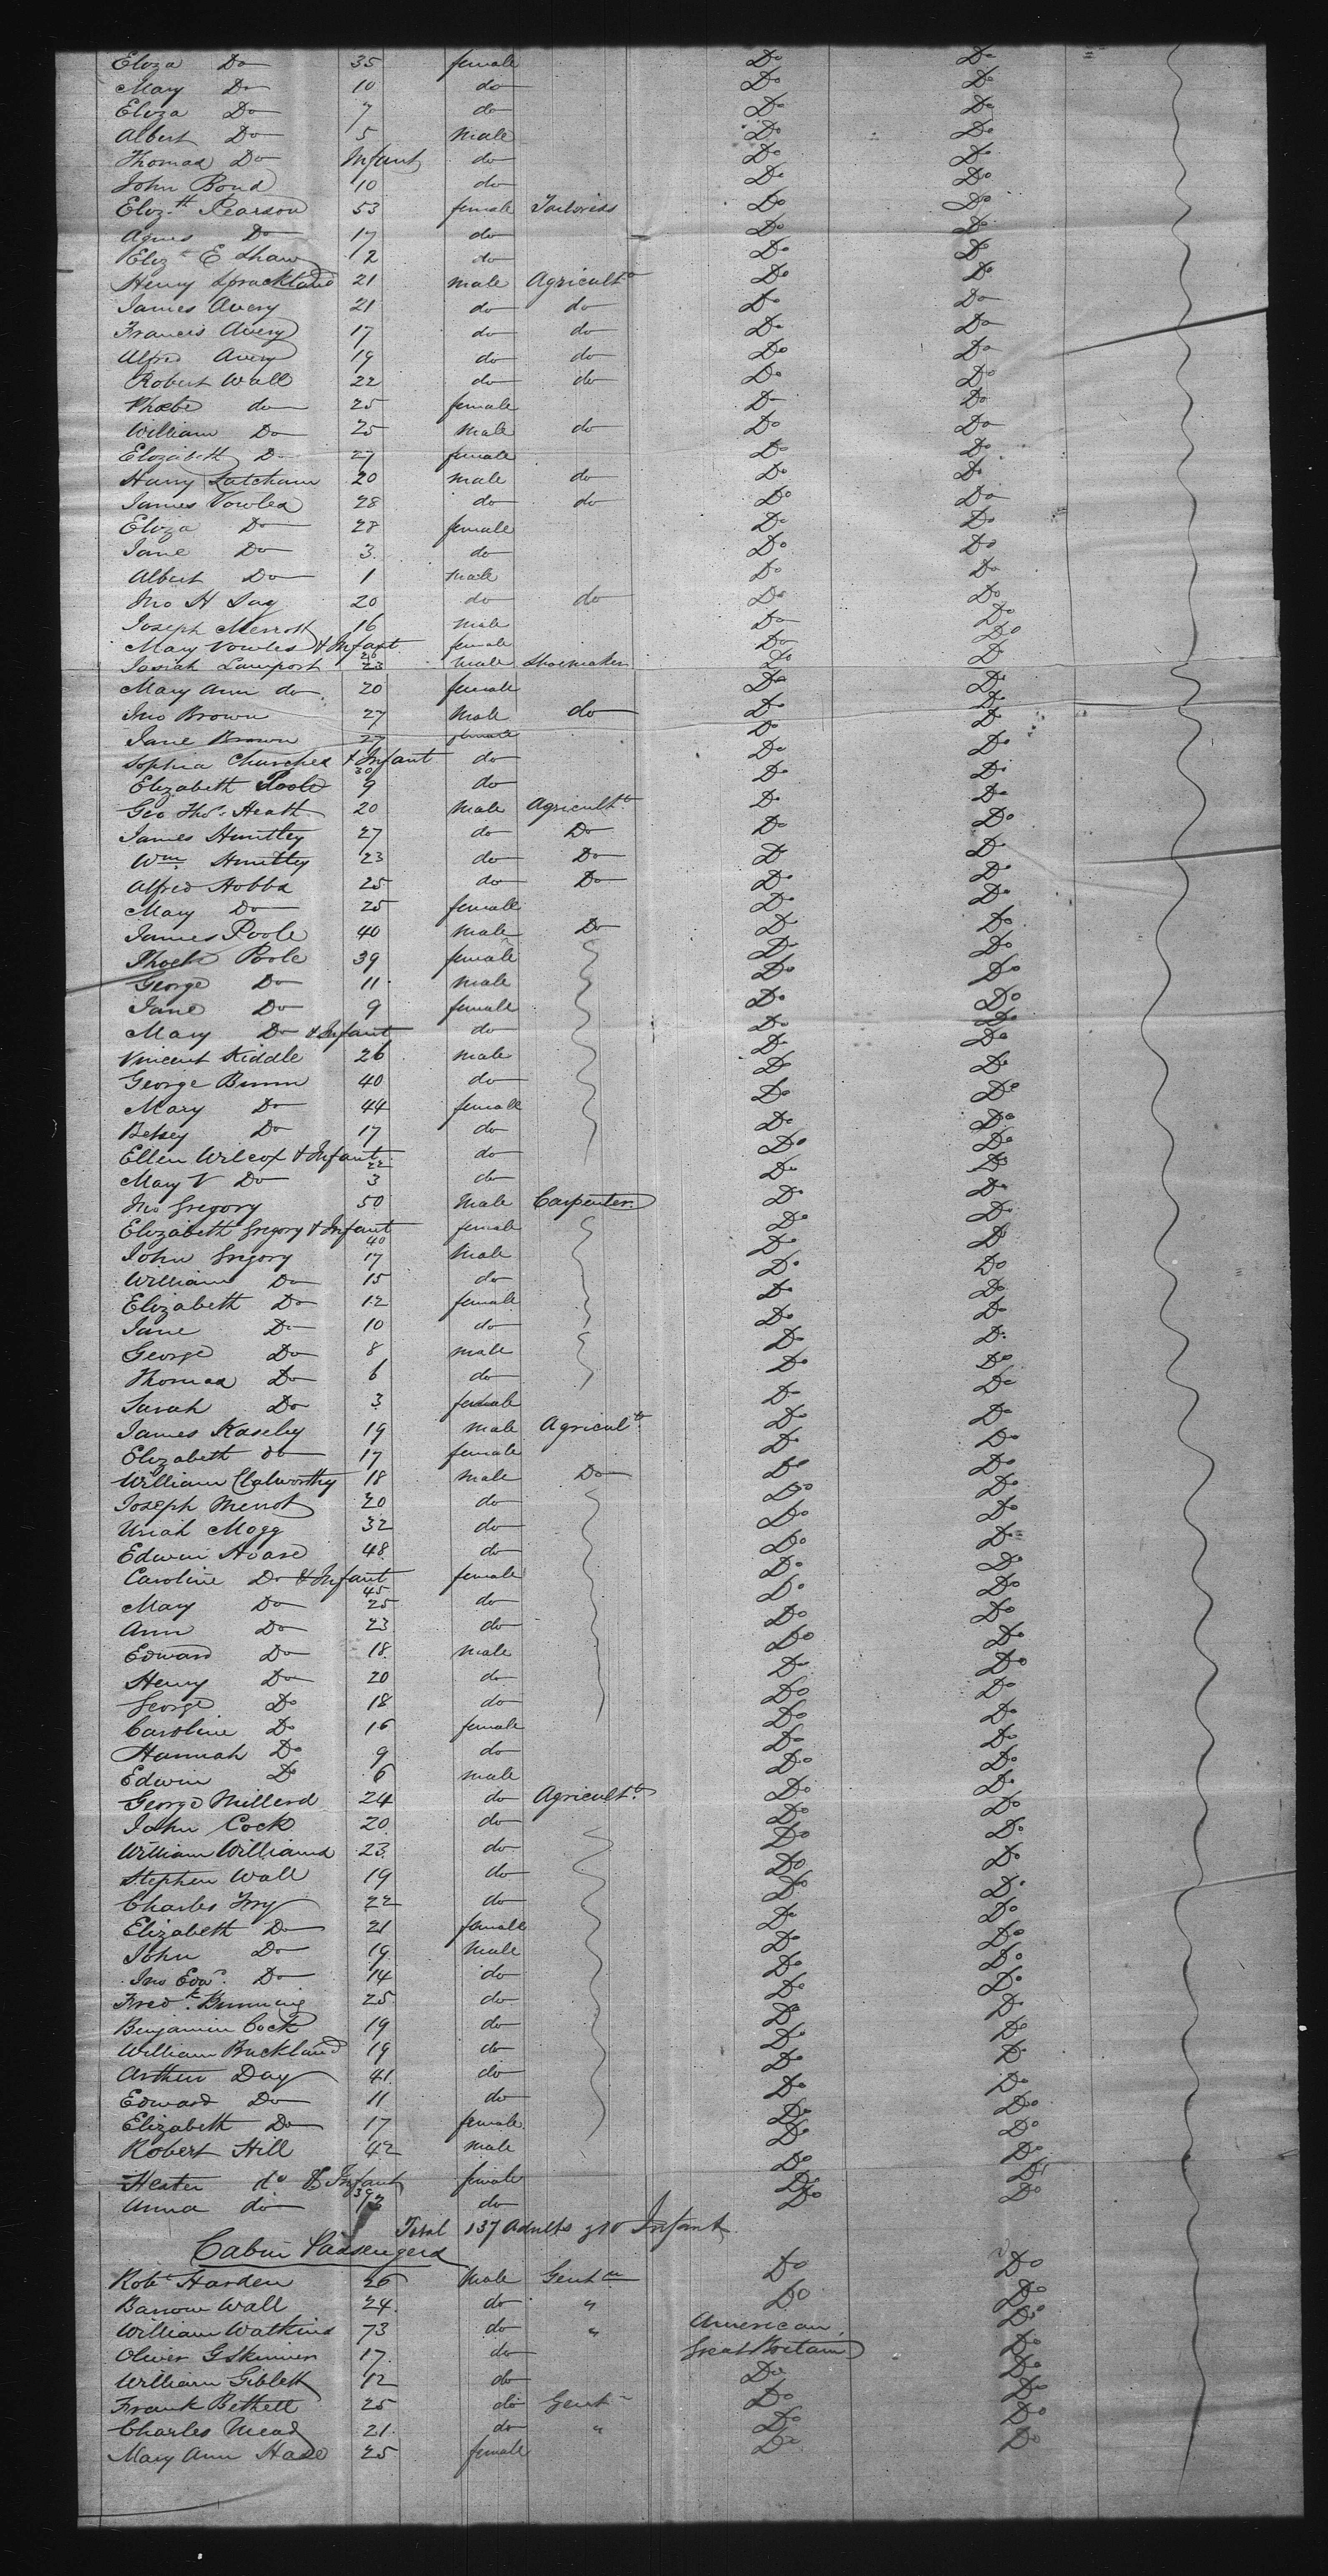 Eliza Do 35 female Do Do
Mary Do 10 do Do Do
Eliza Do 7 do Do Do
Albert Do 5 Male Do Do
Thomas Do Infant do Do Do
John Bond 10 do Do Do
Eliz.th Pearson 53 female Tailoress Do Do
Agnes Do 17 do Do Do
Eliz.t E Shaw 12 do Do Do
Henry Sprackland 21 male Agricult.r Do Do
James Avery 21 do do Do Do
Francis Avery 17 do do Do Do
Alfred Avery 19 do do Do Do
Robert Wall 22 do do Do Do
Phoebe do 25 female Do Do
William Do 25 Male do Do Do
Elizabeth D 27 female Do Do
Harry Latcham 20 male do Do Do
James Vowles 28 do do Do Do
Eliza Do 28 female Do Do
Jane Do 3 do Do Do
Albert Do 1 male Do Do
Jno H Say 20 do do Do Do
Joseph Merrott 16 Male Do Do
Mary Vowles & Infant 26 female Do Do
Josiah Lamport 23 Male Shoemaker Do D
Mary Ann do 20 female Do Do
Jno Brown 27 Male do Do Do
Jane Brown 27 female Do Do
Sophia Churches & Infant 30 do Do Do
Elizabeth Poole 9 do Do Do
Geo Tho.s Heath 20 Male Agricult.r Do Do
James Huntley 27 do Do Do Do
Wm Huntley 23 do Do D D
Alfred Hobbs 25 do Do Do Do
Mary Do 25 female Do Do
James Poole 40 Male Do Do Do
Phoebe Poole 39 female Do Do
George Do 11 male Do Do
Jane Do 9 female Do Do
Mary Do & Infant do Do Do
Vincent Kiddle 26 male Do Do
George Bunn 40 do Do Do
Mary Do 44 female Do Do
Betsey Do 17 do Do Do
Ellen Wilcox & Infant 22 do Do Do
Mary V Do 3 do Do Do
Jno Gregory 50 Male Carpenter Do Do
Elizabeth Gregory & Infant 40 female Do Do
John Gregory 17 Male Do D
William Do 15 do Do Do
Elizabeth Do 12 female Do Do
Jane Do 10 do Do Do
George Do 8 male Do Do
Thomas Do 6 do Do Do
Sarah Do 3 female Do Do
James Kaseby 19 male Agricult.r Do Do
Elizabeth do 17 female Do Do
William Clalworthy 18 male Do Do Do
Joseph Merrot 20 do Do Do
Uriah Mogg 32 do Do Do
Edwin Hoare 48 do Do Do
Caroline Do & Infant 45 female Do Do
Mary Do 25 do Do Do
Ann Do 23 do Do Do
Edward Do 18 male Do Do
Henry Do 20 do Do Do
George Do 18 do Do Do
Caroline Do 16 female Do Do
Hannah Do 9 do Do Do
Edwin Do 6 male Do Do
George Millerd 24 do Agricult.r Do Do
John Cock 20 do Do Do
William Williams 23 do Do Do
Stephen Wall 19 do Do Do
Charles Fry 22 do Do Do
Elizabeth Do 21 female Do Do
John Do 19 Male Do Do
Jno Edw.d Do 14 do Do Do
Fred.k Bunning 25 do Do Do
Benjamin Cock 19 do Do Do
William Buckland 19 do Do Do
Arthur Day 41 do Do Do
Edward Do 11 do Do Do
Elizabeth Do 17 female Do Do
Robert Hill 42 male Do Do
Hester do & Infant 39 female Do Do
Anna do do Do Do
Total 137 Adults & 10 Infant
Cabin Passengers
Robt Harden 26 Male Gentn Do Do
Barrow Wall 24 do " Do Do
William Watkins 73 do " American Do
Oliver G Skinner 17 do Great Britain Do
William Giblett 12 do Do Do
Frank Bethell 25 do Gent Do Do
Charles Mead 21 do " Do Do
Mary Ann Hase 25 female Do Do